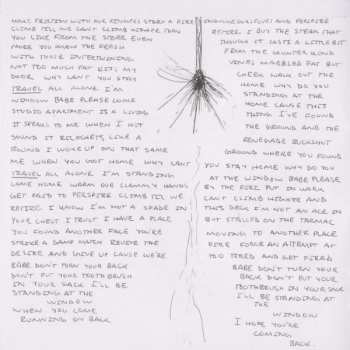 MAKE FRICTION WITH OUR
CLIMB TELL WE CAN'T CLIMB HIGHER THAN
YOU LIKE FROM THE STORE EVEN
MORE YOU KNEW THE FERISH
WITH THOSE INTERTWINING
NOT TOO MUCH FAT HITS MY
DOOR WHY CAN'T YOU STAY
TRAVEL ALL ALONE I'M
WINDOW BABE PLEASE COME
STUDIO APARTMENT IS A LIVING
IT SPELLS TO ME WHEN I HOT
SOUND IT RICOCHETS, LIKE A
ROUND I WOKE UP ON THAT SAME
ME WHEN YOU GOT HOME WHY CAN'T
TRAVEL ALL ALONE I'M STANDING
COME HOME WARM OUR CLAMMY HANDS
GET PAID TO PERSPIRE CLIMB TELL WE
RETIRE I KNOW I'M NOT A SPADE IN
YOUR CHEST I TRUST I HAVE A PLACE
YOU FOUND ANOTHER FACE YOU'RE
STRIKE A SAME MATCH REVIVE THE
DESIRE AND GIVE UP CAUSE WE'RE
BABE DON'T TURN YOUR BACK
DON'T PUT YOUR TOOTHBRUSH
IN YOUR SACK I'LL BE
STANDING AT THE
WINDOW
WHEN YOU COME
RUNNING ON BACK
AND PERSPIRE
RETIRE. I BUY THE STEAK THAT
THOUGH IT COSTS A LITTLE BIT
FROM THE COUNTER
YOU'RE MARBLED FAT BUT
CHECK WALK OUT THE
HOME WHY DO YOU
STANDING AT THE
HOME CAUSE THIS
THING I'VE FOUND
THE GROUND AND THE
RENEGADE BUCKSHOT
GROUND WHERE YOU FOUND
YOU STAY HOME WHY DO YOU
AT THE WINDOW BABE PLEASE
BY THE FIRE PUT IN WORK
CAN'T CLIMB HIGHER AND
THIS DECK I'M NOT AN ACE IN
BUT STILL IS ON THE TARMAC
MOVING TO ANOTHER PLACE
FIRE FORGE AN ATTEMPT AT
TOO TIRED AND GET FIRED
BABE DON'T TURN YOUR
BACK DON'T PUT YOUR
TOOTHBRUSH IN YOUR SACK
I'LL BE STANDING AT
THE
WINDOW
I HOPE YOU'RE
COMING
BACK.